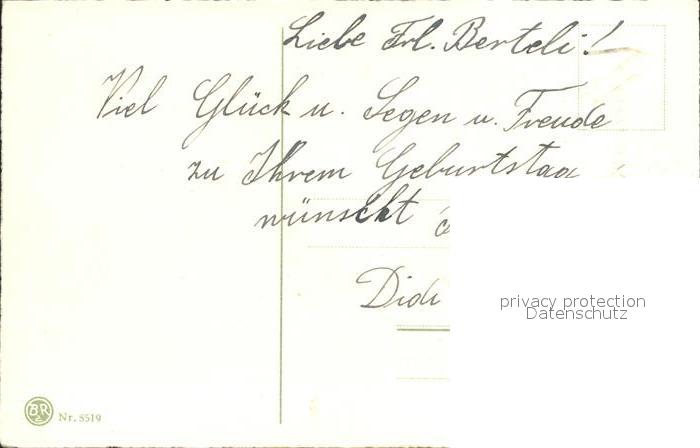 Liebe Frl. Berteli!
Viel Glück u. Segen u. Freude
zu Ihrem Geburtstag
wünscht
privacy protection
Datenschutz
BR
Nr. 5519